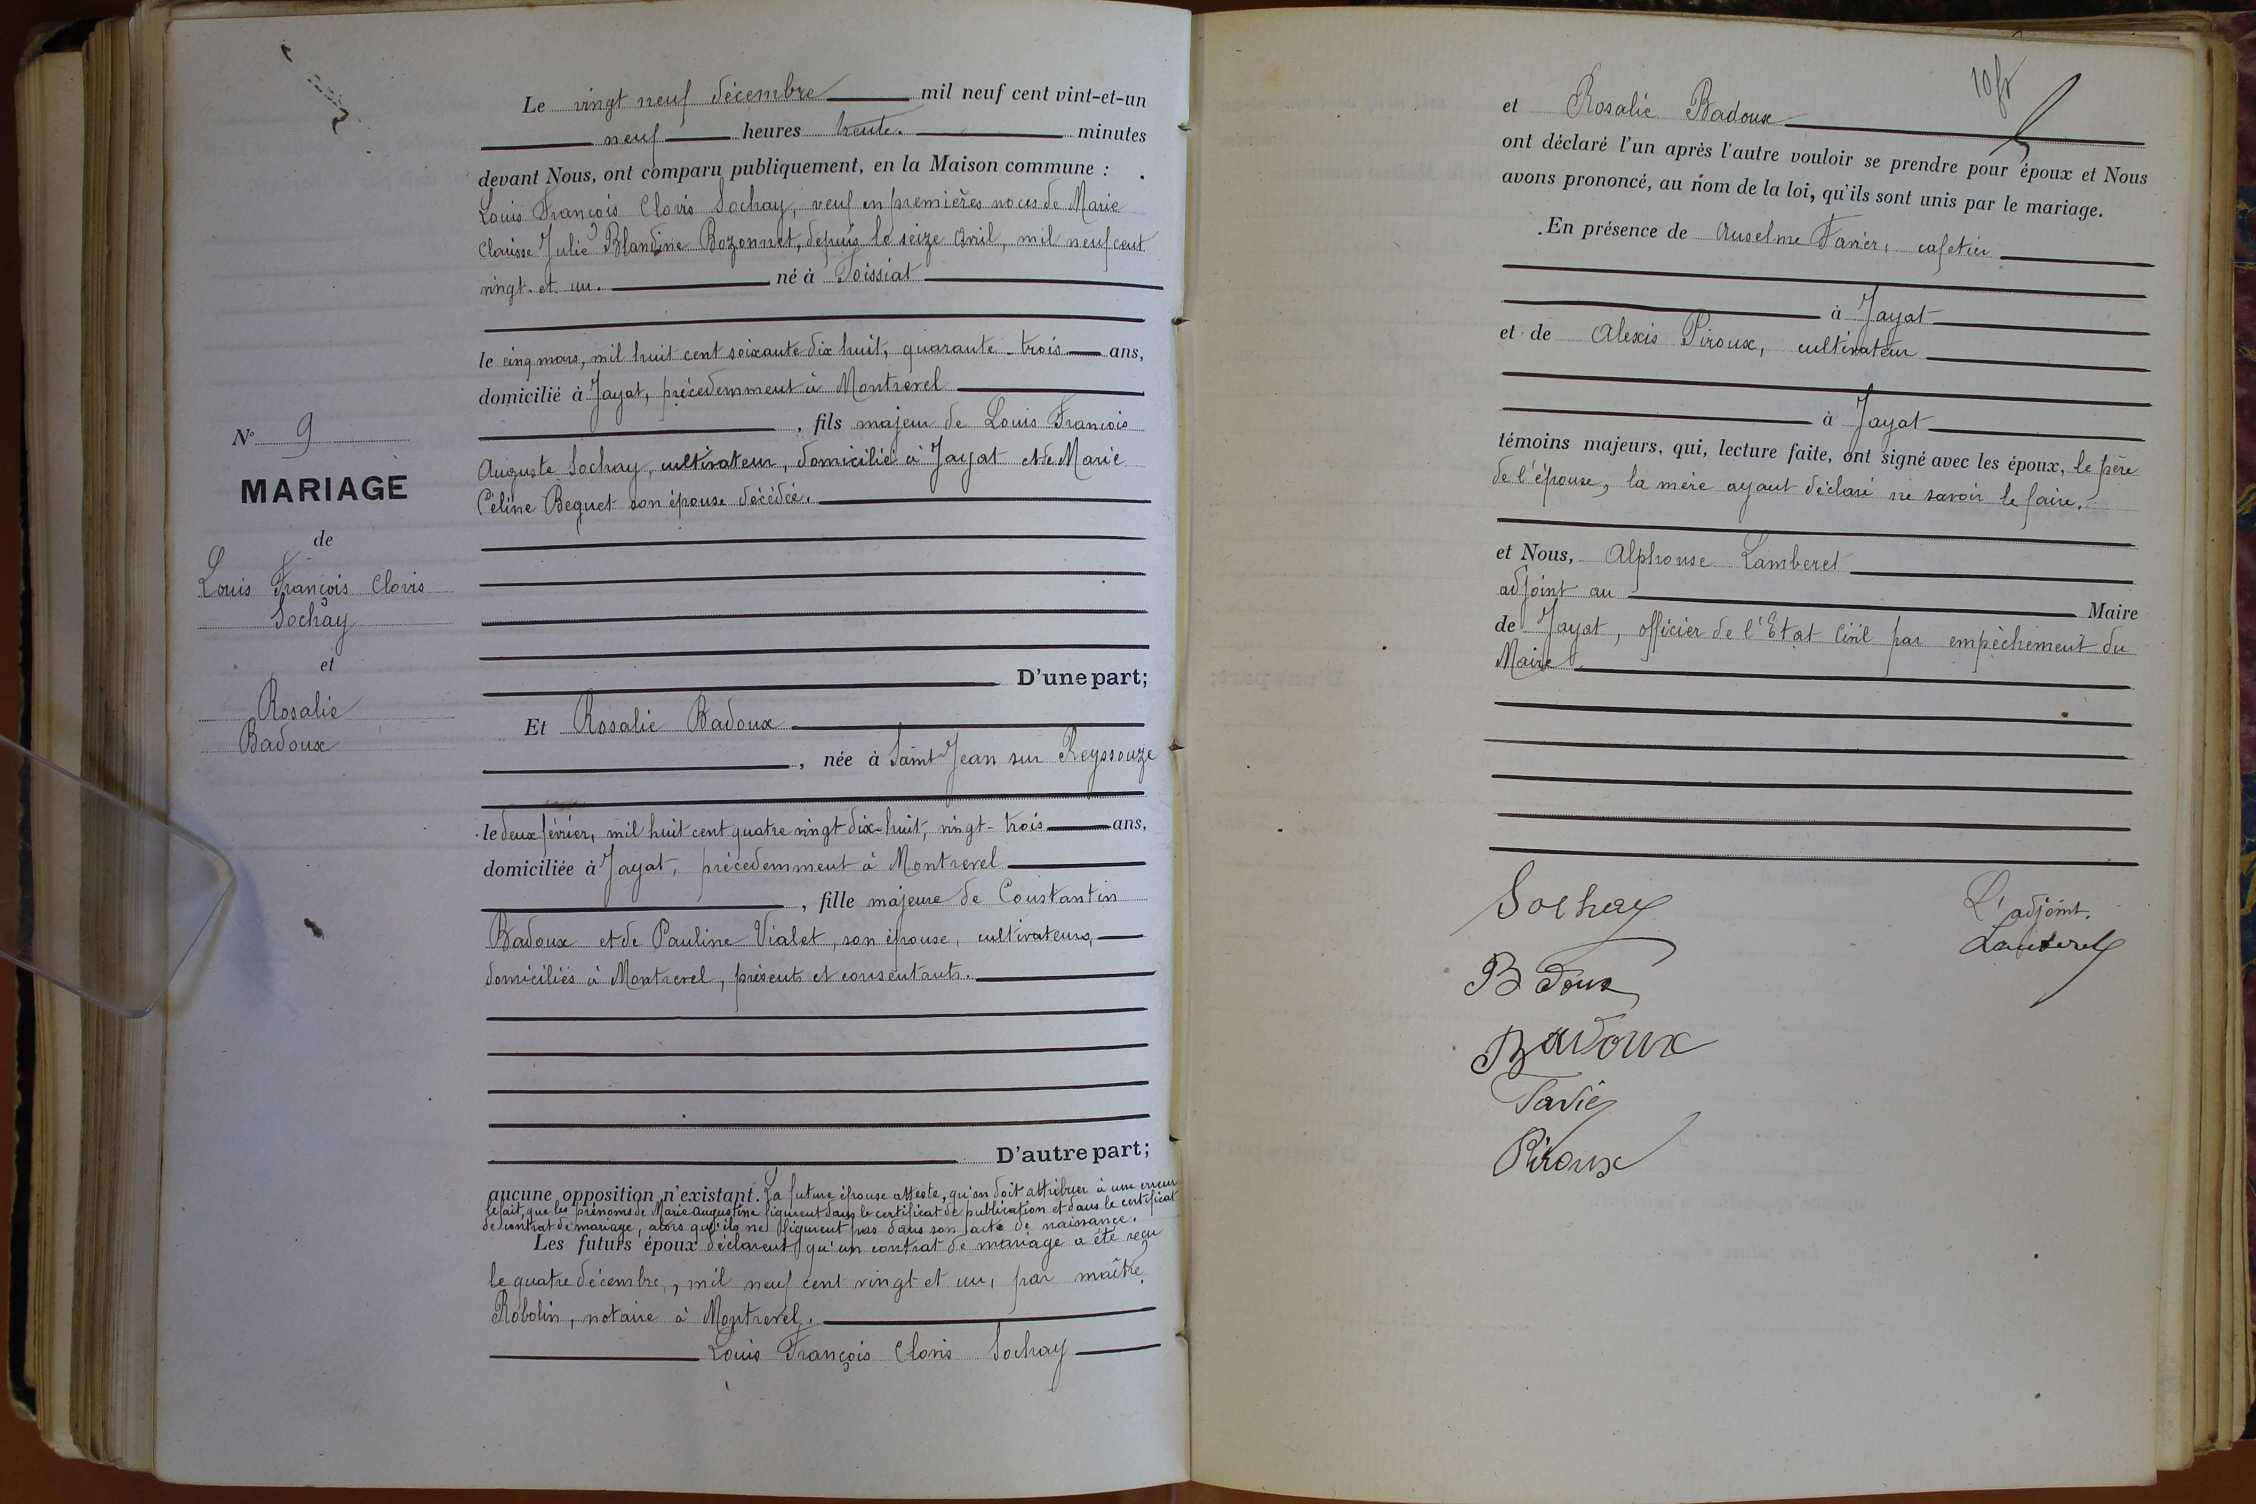 N° 9
MARIAGE
de
Louis François Clovis
Sochay
et
Rosalie
Badoux
Le vingt neuf décembre mil neuf cent vint-et-un
neuf heures trente. minutes
devant Nous, ont comparu publiquement, en la Maison commune :
Louis François Clovis Sochay, veuf en premières noces de Marie
Clarisse Julie Blandine Bozonnet, depuis le seize avril, mil neuf cent
vingt et un. né à Foissiat
le cinq mars, mil huit cent soixante dix huit, quarante-trois ans,
domicilié à Jayat, précedemment à Montrevel
, fils majeur de Louis François
Auguste Sochay, cultivateur, domicilié à Jayat et de Marie
Céline Beguet son épouse décédée.
D'une part;
Et Rosalie Badoux
, née à Saint Jean sur Reyssouze
le deux février, mil huit cent quatre vingt dix-huit, vingt-trois ans,
domiciliée à Jayat, précedemment à Montrevel
, fille majeure de Constantin
Badoux et de Pauline Vialet, son épouse, cultivateurs,
domiciliés à Montrevel, présents et consentants.
D'autre part;
aucune opposition n'existant. La future épouse atteste, qu'on doit attribuer à une erreur
le fait, que les prénoms de Marie Augustine figurent dans le certificat de publication et dans le certificat
de contrat de mariage, alors qu'ils ne figurent pas dans son acte de naissance.
Les futurs époux déclarent qu'un contrat de mariage a été reçu
le quatre décembre, mil neuf cent vingt et un, par maître
Robolin, notaire à Montrevel.
Louis François Clovis Sochay
10 fr
et Rosalie Badoux
ont déclaré l'un après l'autre vouloir se prendre pour époux et Nous
avons prononcé, au nom de la loi, qu'ils sont unis par le mariage.
En présence de Anselme Favier, cafetier
à Jayat
et de Alexis Piroux, cultivateur
à Jayat
témoins majeurs, qui, lecture faite, ont signé avec les époux, le père
de l'épouse, la mère ayant déclaré ne savoir le faire.
et Nous, Alphonse Lamberet
adjoint au Maire
de Jayat, officier de l'Etat Civil par empèchement du
Maire
Sochay
L'adjoint.
Lamberet
Badoux
Badoux
Favier
Piroux